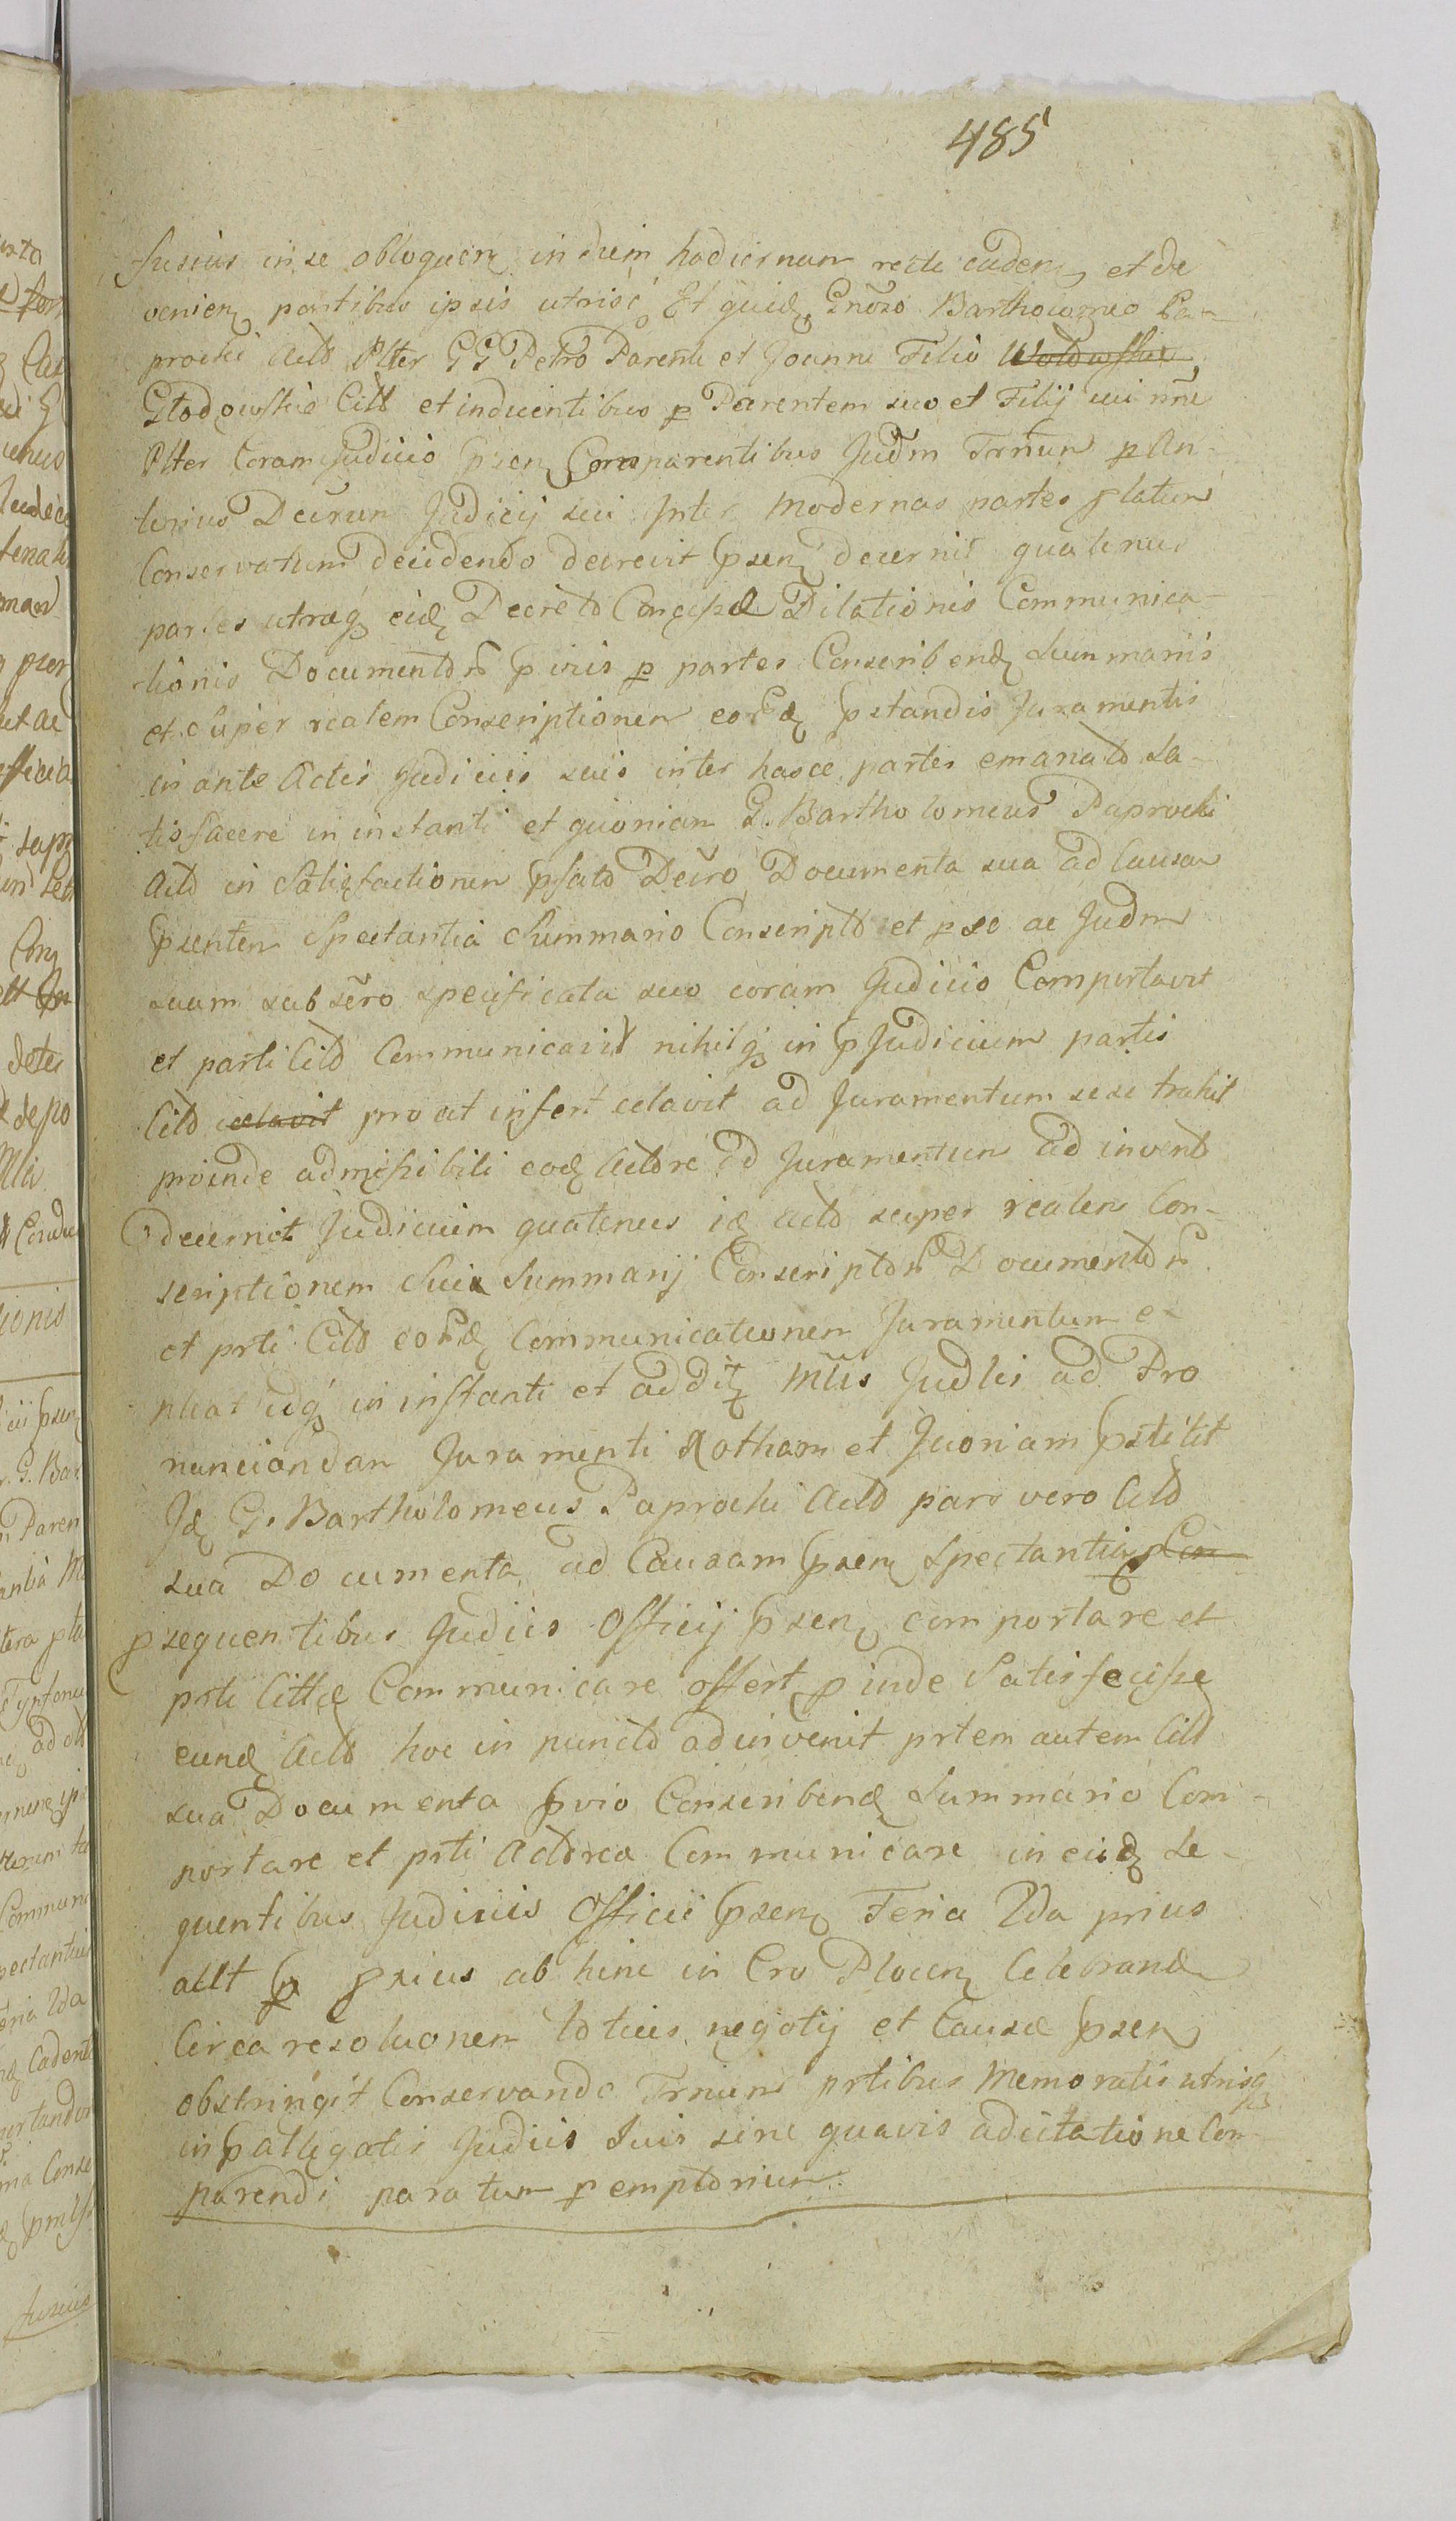 485
fusius in se obloquen in diem hodiernam recte caden et de
venien partibus ipsis utrisq Et quid Gnoso Bartholomeo Pa-
procki Acto Plter GG Petro Parente et Joanne Filio Wotdowskie
Głodowskie Citt et inducentibus p Parentem suo et Filij sui nne
Plter Coram Judicio psen Comparentibus Judm Trnum p An-
terius Decrum Judicij sui Inter modernas partes latum
Conservatum decidendo decrevit psen decernit quatenus
partes utraq eid Decreto Concessæ Dilationis Communica-
tionis Documentor pviis p partes Conscribend Summariis
et super realem Conscriptionem eord pstandis Juramentis
in ante Actis Judiciis suis inter hasce partes emanato Sa-
tisfacere in instanti et quoniam G. Bartholomeus Paprocki
Acto in Satisfactionem psato Decro Documenta sua ad Causam
psentem Spectantia Summario Conscripto et p se ac Judm
suum sub sero specificata suo coram Judicio Comportavit
et parti Cito Communicavit nihilq in pJudicium partis
Cito celavit pro ut infert celavit ad Juramentum sese trahit
proinde admissibili eod Actore ad Juramentum ad invento
decernit Judicium quatenus id Acto super realem Con-
scriptionem Suix Summarij Conscriptor Documentor
et prti Cito eord Communicationem Juramentum e-
pleat idq in instanti et addit Mlis Judlis ad Pro
nunciandam Juramenti Rotham et Quoniam pstitit
Id G. Bartholomeus Paprocki Acto pars vero Cito
sua Documenta ad Causam psen Spectantia
p sequentibus Judiis Officij psen comportare et
prti Cittæ Communicare offert p inde Satisfecisse
eund Acto hoc in puncto adinvenit prtem autem Citt
sua Documenta pvio Conscribend Summario Com-
portare et prti Actorea Communicare in eiid Se-
quentibus Judiciis Officii psen Feria 2da prius
allt p prius ab hinc in Cro Plocen Celebrand
Circa resoluonem totius negotij et Causæ psen
obstringit Conservando Trnum prtibus Memoratis utrisq
in pallegatis Judiis Suis sine quavis adcitatione Com-
parendi paratum p emptorium.